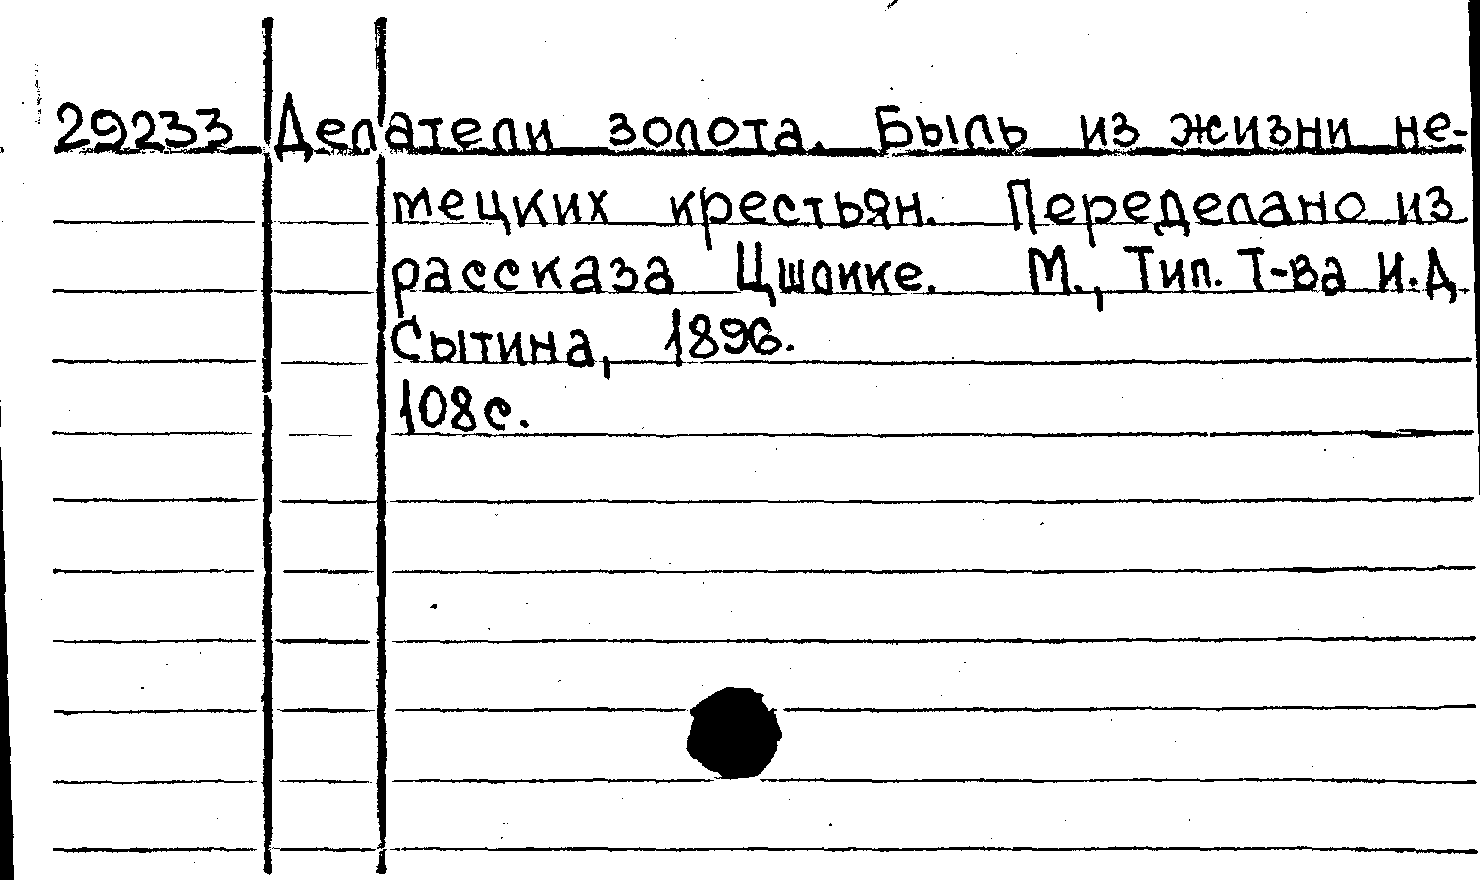 29233 Делатели золота. Быль из жизни не-
мецких крестьян. Переделано из
рассказа Цшокке. М., Тип. Т-ва И.Д
Сытина, 1896.
108с.